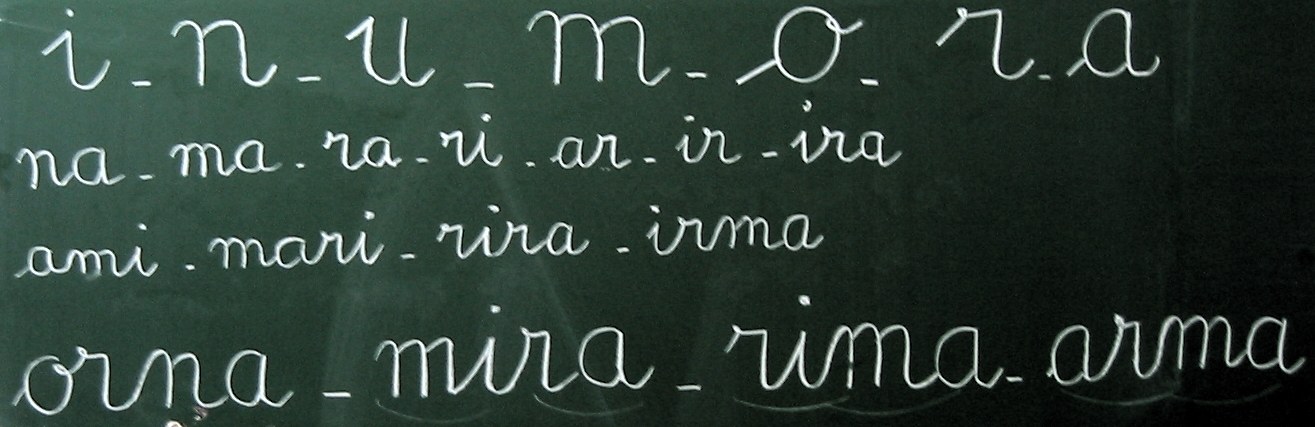 i - n - u - m - o - r - a
na - ma - ra - ri - ar - ir - ira
ami - mari - rira - irma
orna - mira - rima - arma